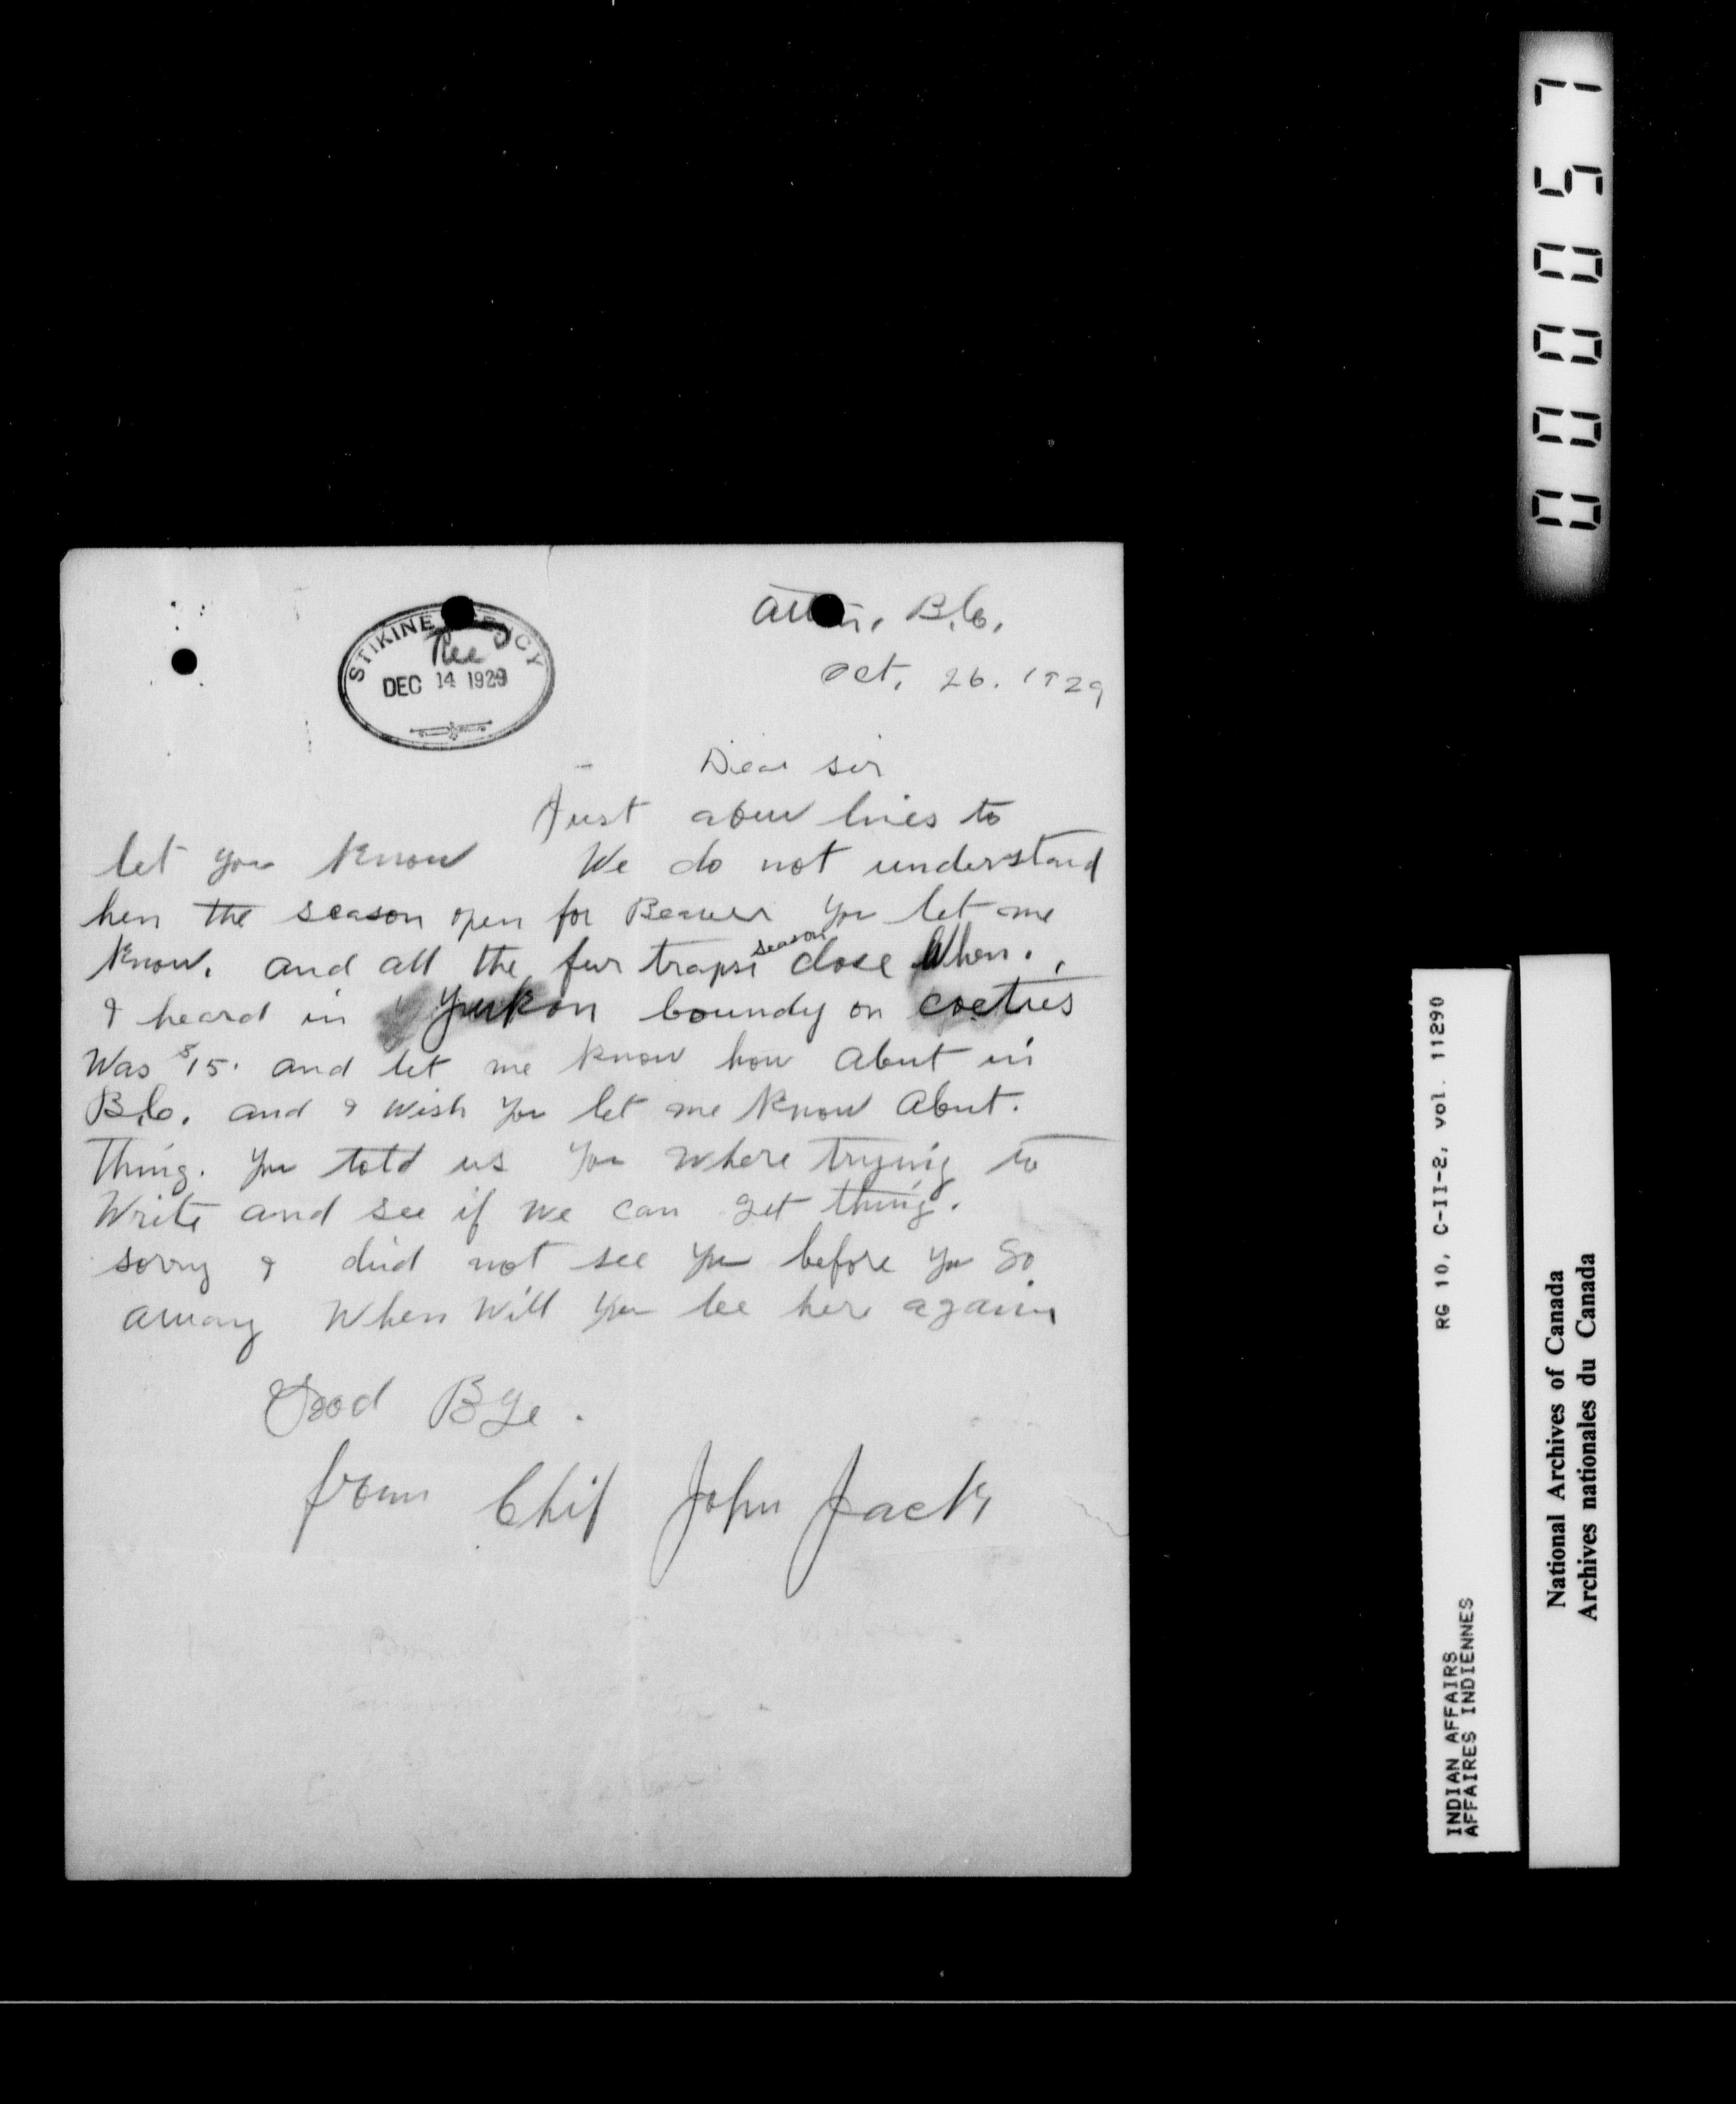 STIKINE AGENCY
Rec
DEC 14 1929
Atlin, B.C.
Oct, 26. 1929
Dear sir
Just a few lines to
let you know We do not understand
hen the season open for Beaver you let me
know. and all the fur traps season close When.
I heard in Yukon boundy on coeties
Was $15. and let me know how abut in
B.C. and I wish you let me know abut.
Thing. you told us you where trying to
Write and see if we can get thing.
sorry I did not see you before you go
away When Will you be here again
Good Bye.
from Chif John Jack
000057
RG 10, C-II-2, vol. 11290
INDIAN AFFAIRS
AFFAIRES INDIENNES
National Archives of Canada
Archives nationales du Canada